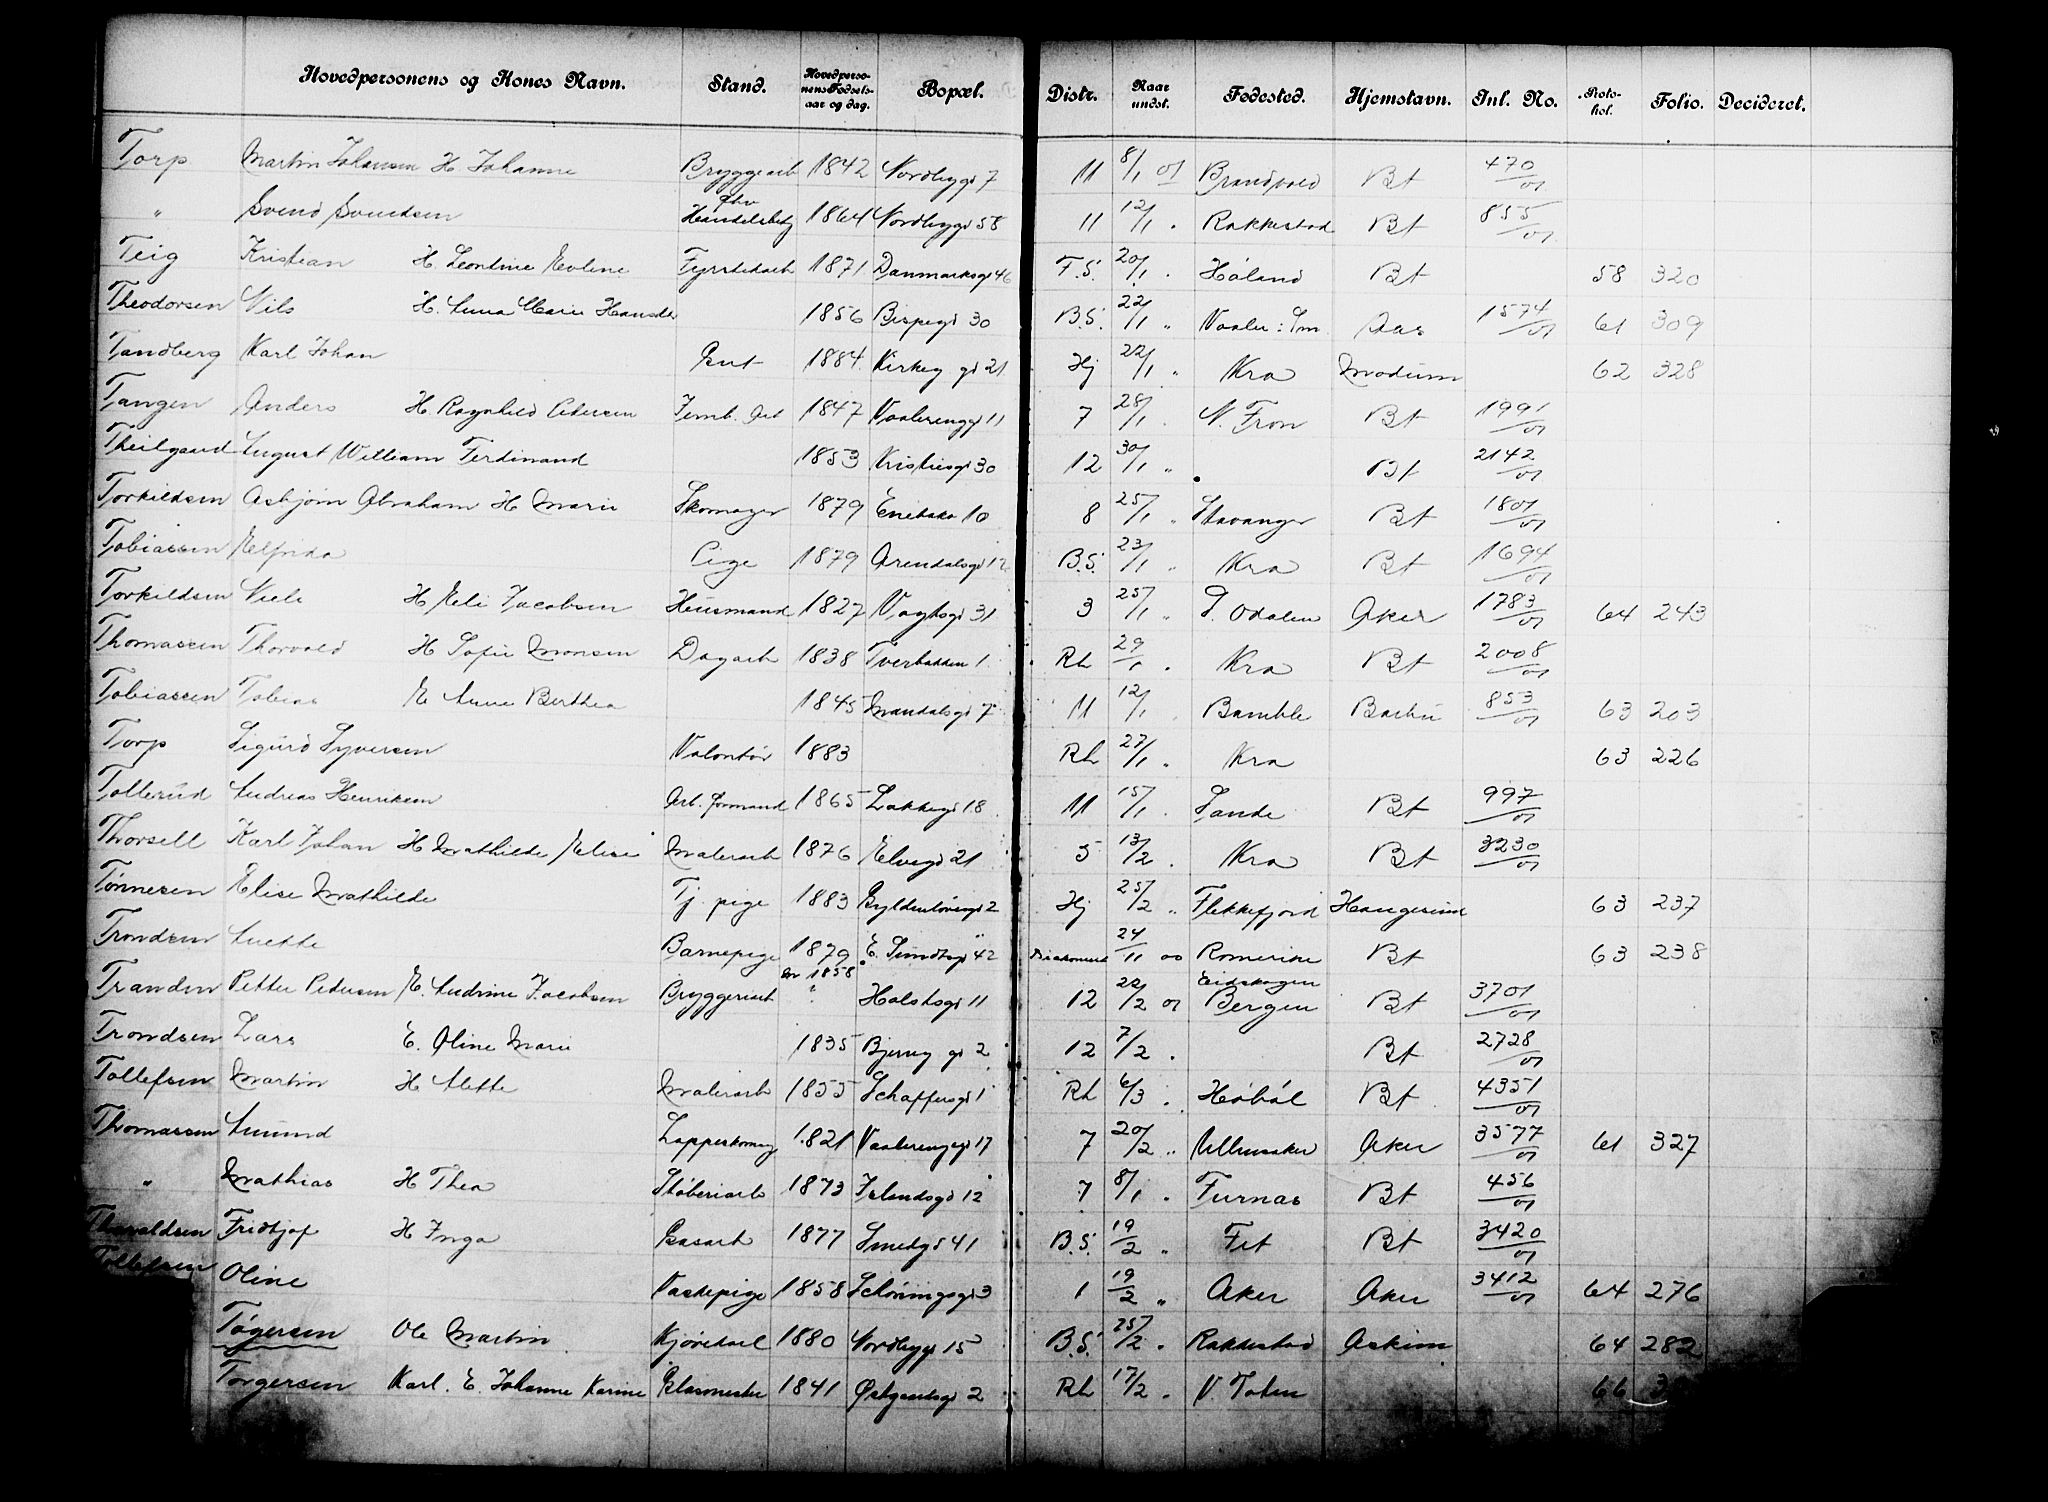 Hovedpersonens og Kones Navn. Stand. Hovedpersonens Fødselsaar og dag. Bopæl. Distr. Naar undst. Fødested. Hjemstavn. Inl. No. Protokol. Folio. Decideret.
Torp Martin Johansen H Johanne Bryggearb 1842 Nordbygd 7 11 8/1 01 Brandvold Bt 470/01
" Svend Svendsen Handelsbetj 1864 Nordbygd 58 11 12/1 . Rakkestad Bt 855/01
Teig Kristian H. Leontine Evline Fyrstikarb 1871 Danmarksgd 46 F.S. 20/1 . Høland Bt 58 320
Theodorsen Nils H. Anna Marie Hansdr 1856 Bispegd 30 B.S. 22/1 " Vaaler : Sm Aas 1574/01 61 309
Tandberg Karl Johan Gut 1884 Kirkeg gd 21 Hj 22/1 " Kra Modum 62 328
Tangen Anders H. Ragnhild Pedersen Jernb. Arb 1847 Vaalerenggd 11 7 28/1 . N. Fron Bt 1991/01
Theilgaard August William Ferdinand 1853 Kristiesgd 30 12 30/1 " Bt 2142/01
Torkildsen Asbjørn Abraham H Marie Skomager 1879 Enebakv 10 8 25/1 " Stavanger Bt 1801/01
Tobiassen Elfrida Pige 1879 Arendalsgd 12 B.S. 23/1 " Kra Bt 1694/01
Torkildsen Niels H Eli Jacobsen Husmand 1827 Vogtsgd 31 3 25/1 " S. Odalen Aker 1783/01 64 243
Thomassen Thorvald H Sofie Monsen Dagarb 1838 Tverbakken 1 Rh 29/1 . Kra Bt 2008/01
Tobiassen Tobias E Anne Berthea 1845 Mandalsgd 7 11 12/1 . Bamble Barbu 853/01 63 203
Torp Sigurd Syversen Volontør 1883 Rh 27/1 " Kra 63 226
Tollerud Andreas Henriksen Arb. formand 1865 Lakkegd 18 11 15/1 . Sande Bt 997/01
Thorsell Karl Johan H Mathilde Elise Malerarb 1876 Elvegd 21 5 13/2 . Kra Bt 3230/01
Tønnesen Elise Mathilde Tj. pige 1883 Gyldenløvesgd 2 Hj 25/2 " Flekkefjord 63 237
Trondsen Anette Barnepige 1879 E. Sundtsgd 42 24/11 00 Romerike Bt 63 238
Trandin Petter Pedersen E. Andrine Jacobsen Bryggeriarb en 1858 " Holstsgd 11 12 22/2 01 Eidskogen Bergen Bt 3701/01
Trondsen Lars E. Oline Marie 1835 Bjerreg gd 2 12 7/2 . Bt 2728/01
Tollefsen Martin H Mette Malerarb 1855 Schaffersgd 1 Rh 6/3 . Høbøl Bt 4351/01
Thomassen Amund Lappeskomag 1821 Vaalerenggd 17 7 20/2 " Ullensaker Aker 3577/01 61 327
" Mathias H Thea Støberiarb 1873 Islandsgd 12 7 8/1 . Furnæs Bt 456/01
Thorvaldsen Fridtjof H Inga Gasarb 1877 Smedgd 41 B.S. 19/2 " Fet Bt 3420/01
Tollefsen Oline Vaskepige 1858 Schøningsgd 3 1 19/2 " Aker Aker 3412/01 64 276
Tøgersen Ole Martin Kjørekarl 1880 Nordbygd 15 B.S. 25/2 . Rakkestad Askim 64 282
Torgersen Karl. E. Johanne Karine Glasmester 1841 Østgaardsgd 2 Rh 17/2 . V. Toten 66